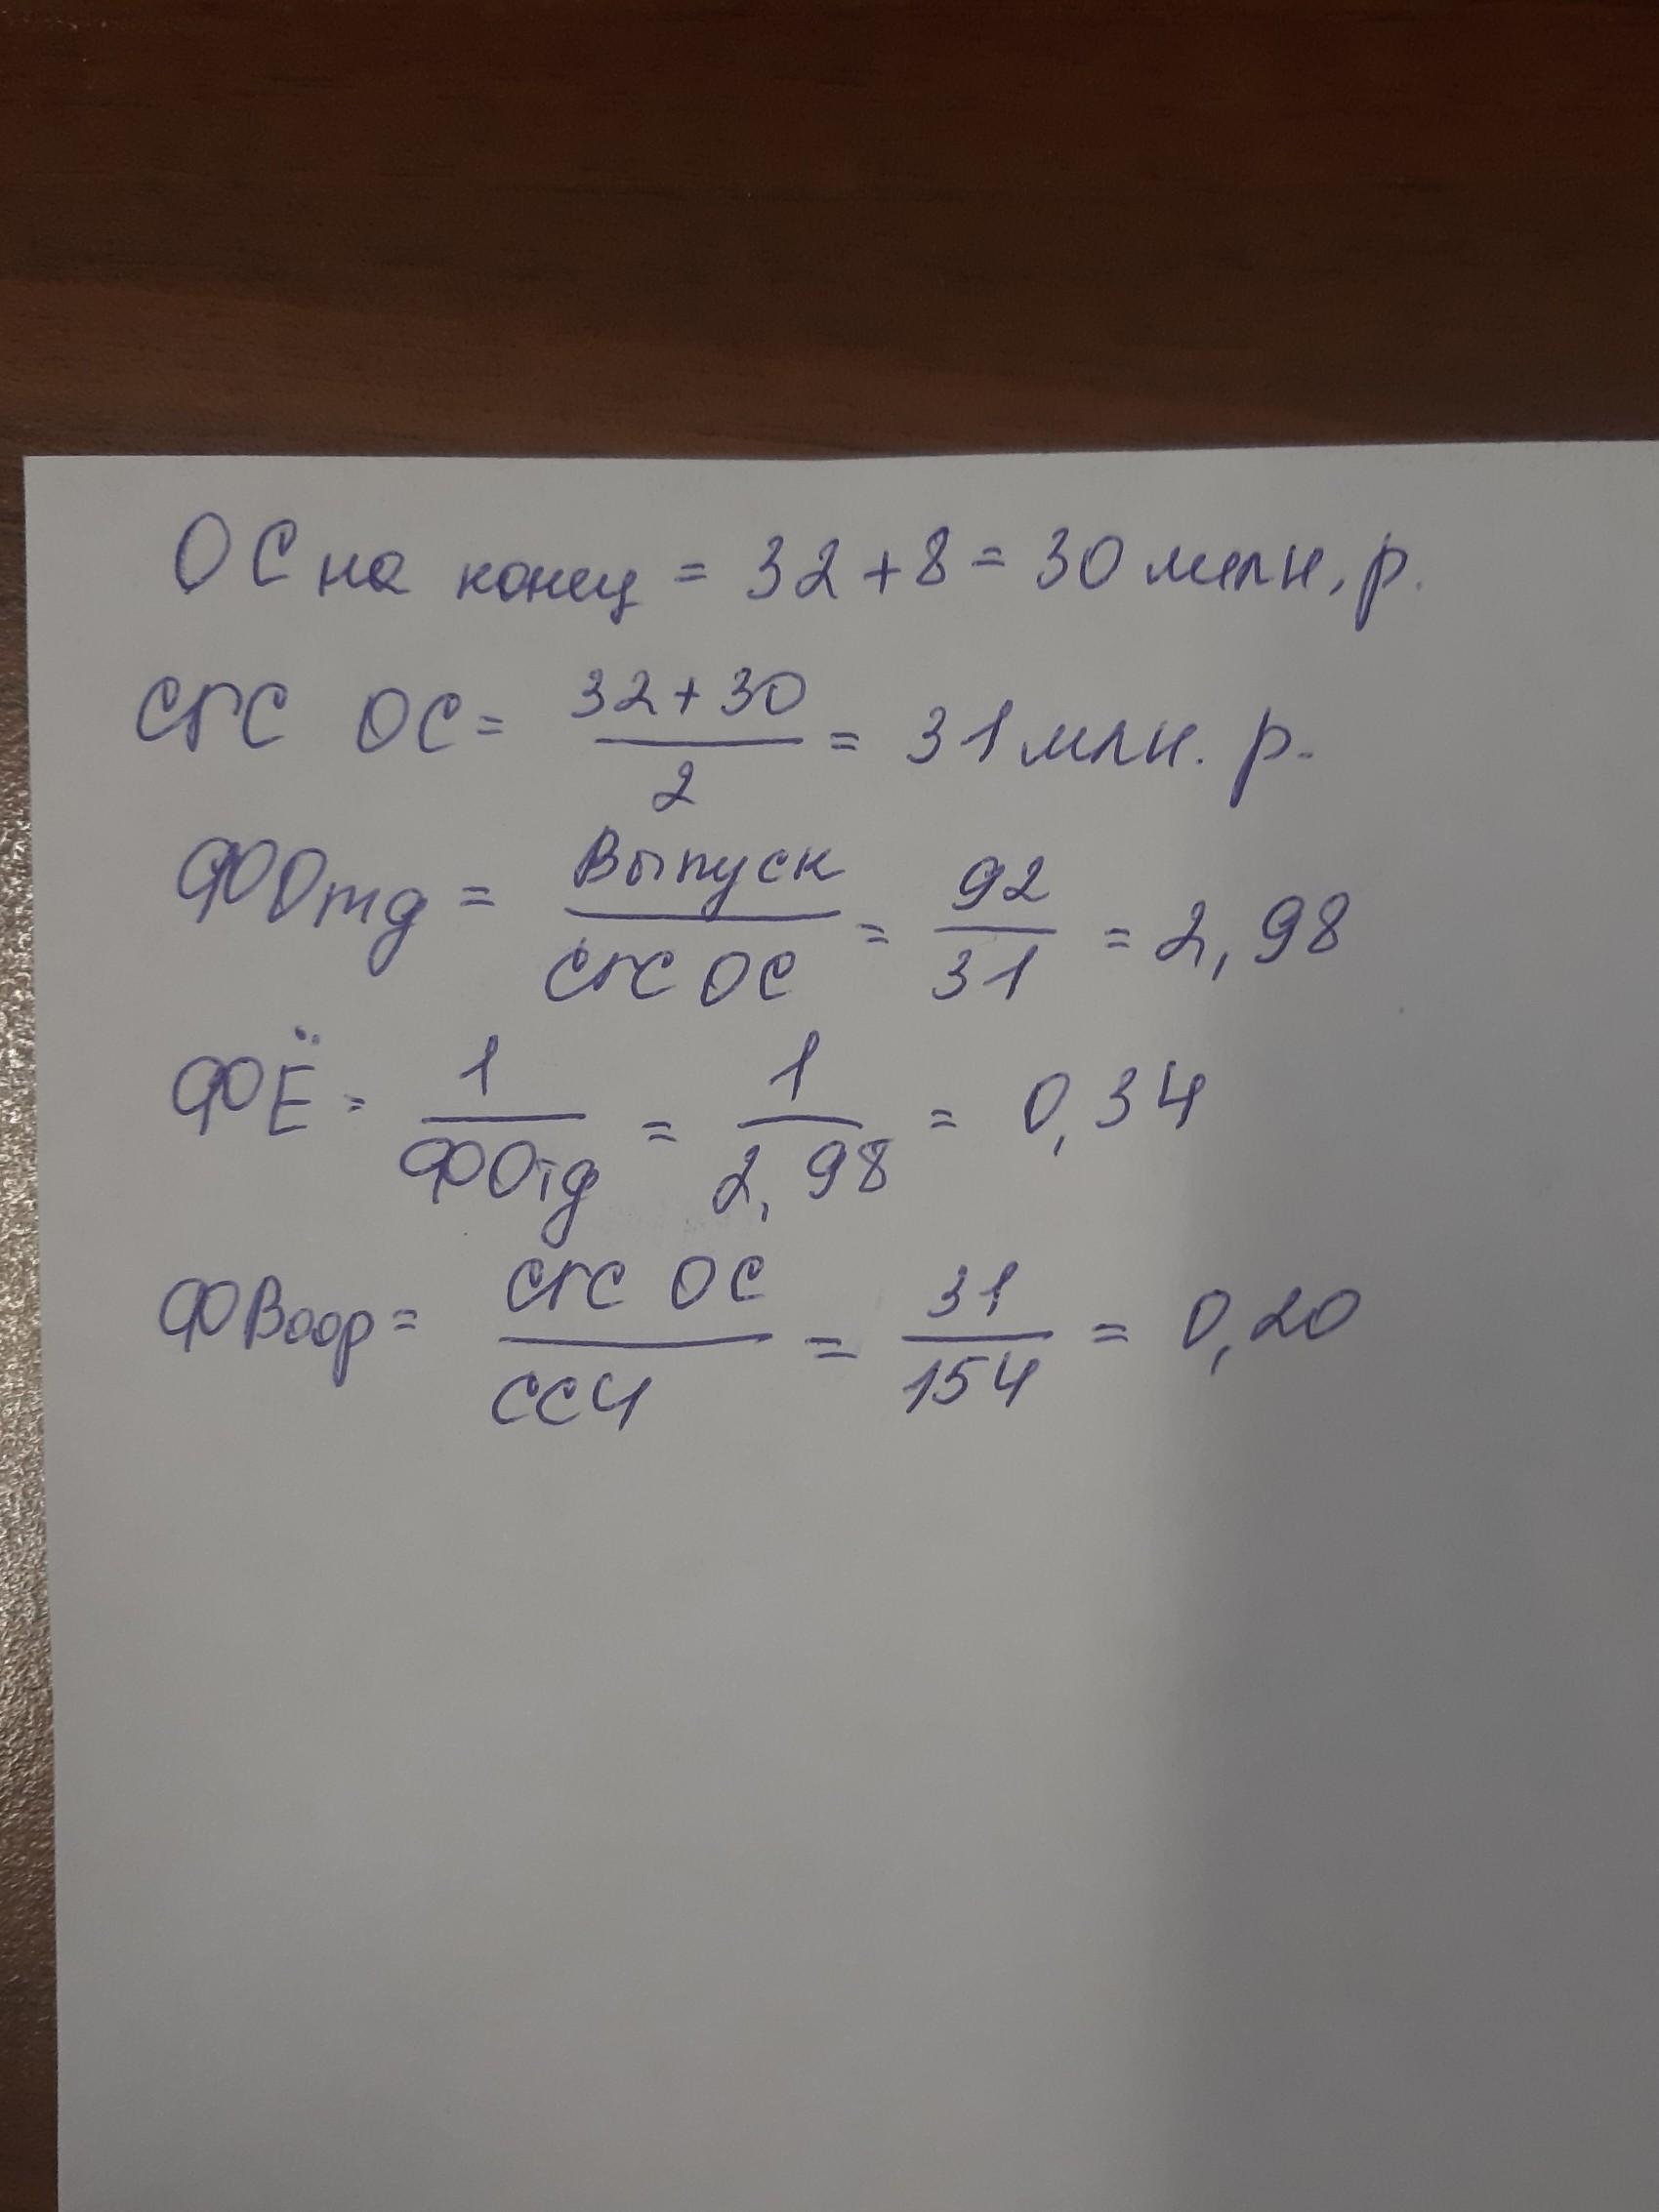 ОС на конец = 32 + 8 = 30 млн. р.
СГС ОС = (32 + 30) / 2 = 31 млн. р.
ФОотд = Выпуск / СГС ОС = 92 / 31 = 2,98
ФЁ = 1 / ФОтд = 1 / 2,98 = 0,34
ФВоор = СГС ОС / ССЧ = 31 / 154 = 0,20